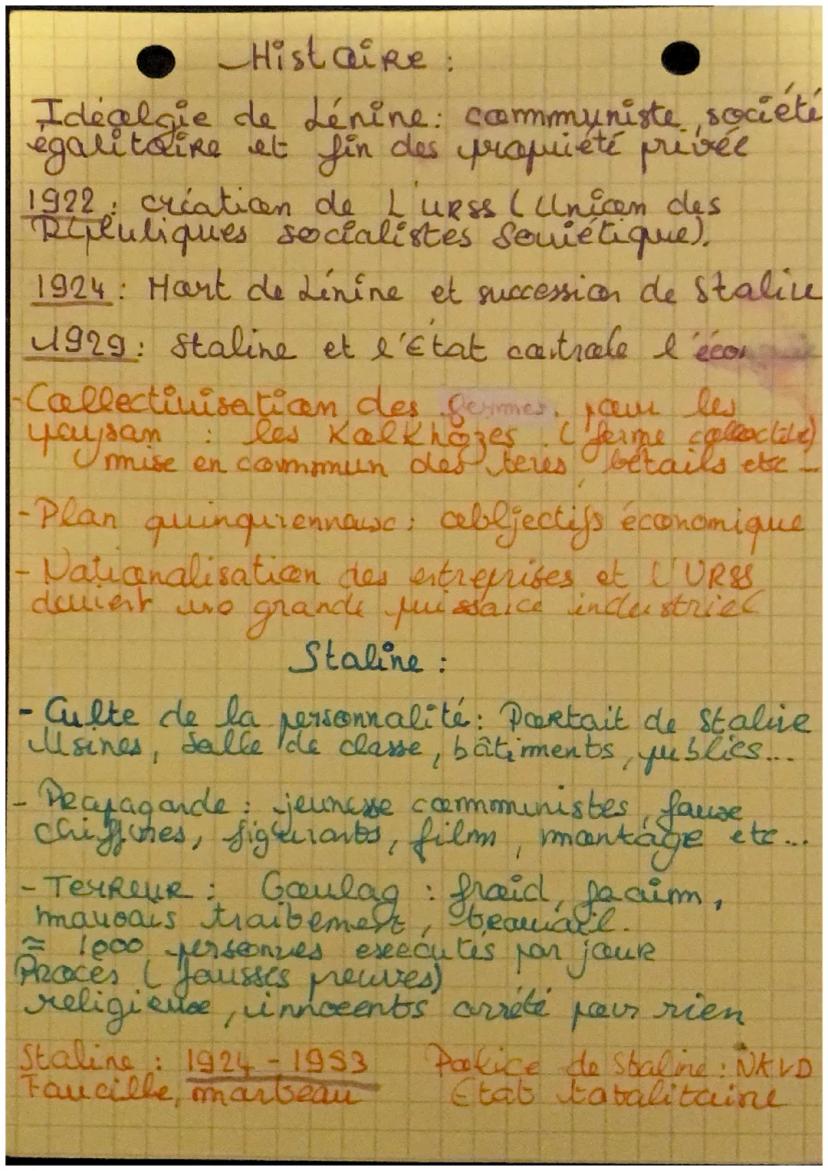 Histoire :
Idéolgie de Lénine : communiste, société
égalitaire et fin des propriété privée
1922 : création de L'URSS (Union des
Républiques socialistes Soviétique).
1924 : Mort de Lénine et succession de Staline
1929 : Staline et l'État controle l'écon
- Collectivisation des fermes, pour les
paysan : les Kolkhozes. (ferme collective)
mise en commun des teres, bétails etc -
- Plan quinquennaux : objectifs économique
- Nationalisation des entreprises et L'URSS
devient une grande puissance industriel
Staline :
- Culte de la personnalité : Portait de Staline
Usines, Salle de classe, bâtiments, publics...
- Propagande : jeunesse communistes, fause
chiffres, figurants, film, montage etc...
- Terreur : Goulag : froid, faim,
mauvais traitement, travail.
≈ 1000 personnes executés par jour
Procès (fausses preuves)
religieux, innocents arrété pour rien
Staline : 1924 - 1953 Police de Staline : NKVD
Faucille, marteau État totalitaire